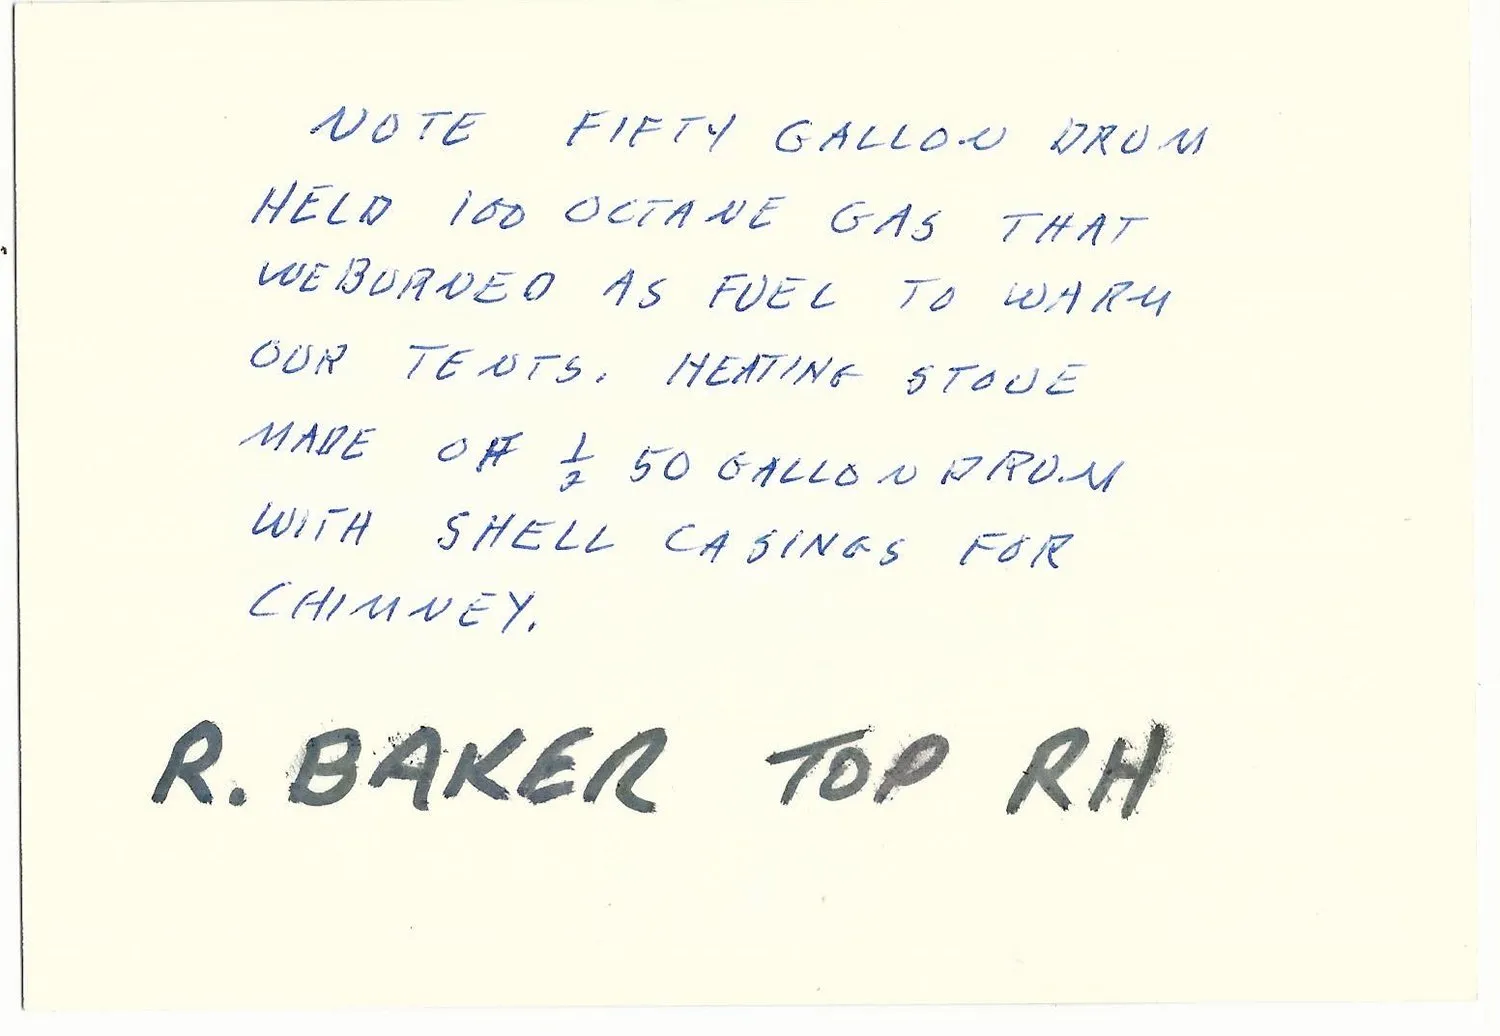 NOTE FIFTY GALLON DRUM
HELD 100 OCTANE GAS THAT
WEBURNED AS FUEL TO WARM
OUR TENTS. HEATING STOVE
MADE OF 1/2 50 GALLON DRUM
WITH SHELL CASINGS FOR
CHIMNEY.
R. BAKER TOP RH